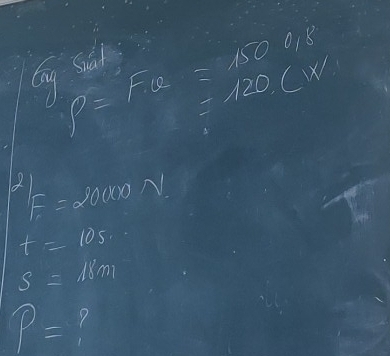 Công suất
P = F.v = 150 0,8
= 120. (W
2)
F = 20000 N
t = 10s.
s = 18m
P = ?